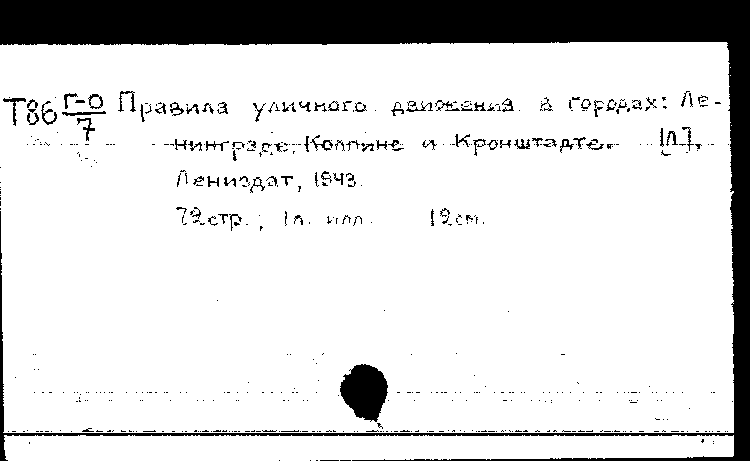 Т86 Г-0/7 Правила уличного движения в городах: Ле-
нинграде, Колпине и Кронштадте. [Л].
Лениздат, 1943.
72стр.; 1л. илл. 12см.